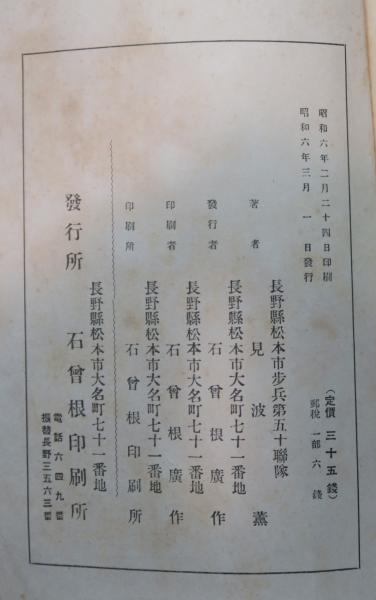 昭和六年二月二十四日印刷
昭和六年三月一日發行
(定價三十五錢)
郵稅一部六錢
長野縣松本市步兵第五十聯隊
著者 見波薰
長野縣松本市大名町七十一番地
發行者 石曾根廣作
長野縣松本市大名町七十一番地
印刷者 石曾根廣作
長野縣松本市大名町七十一番地
印刷所 石曾根印刷所
長野縣松本市大名町七十一番地
發行所 石曾根印刷所
電話六四九番
振替長野三五六三番